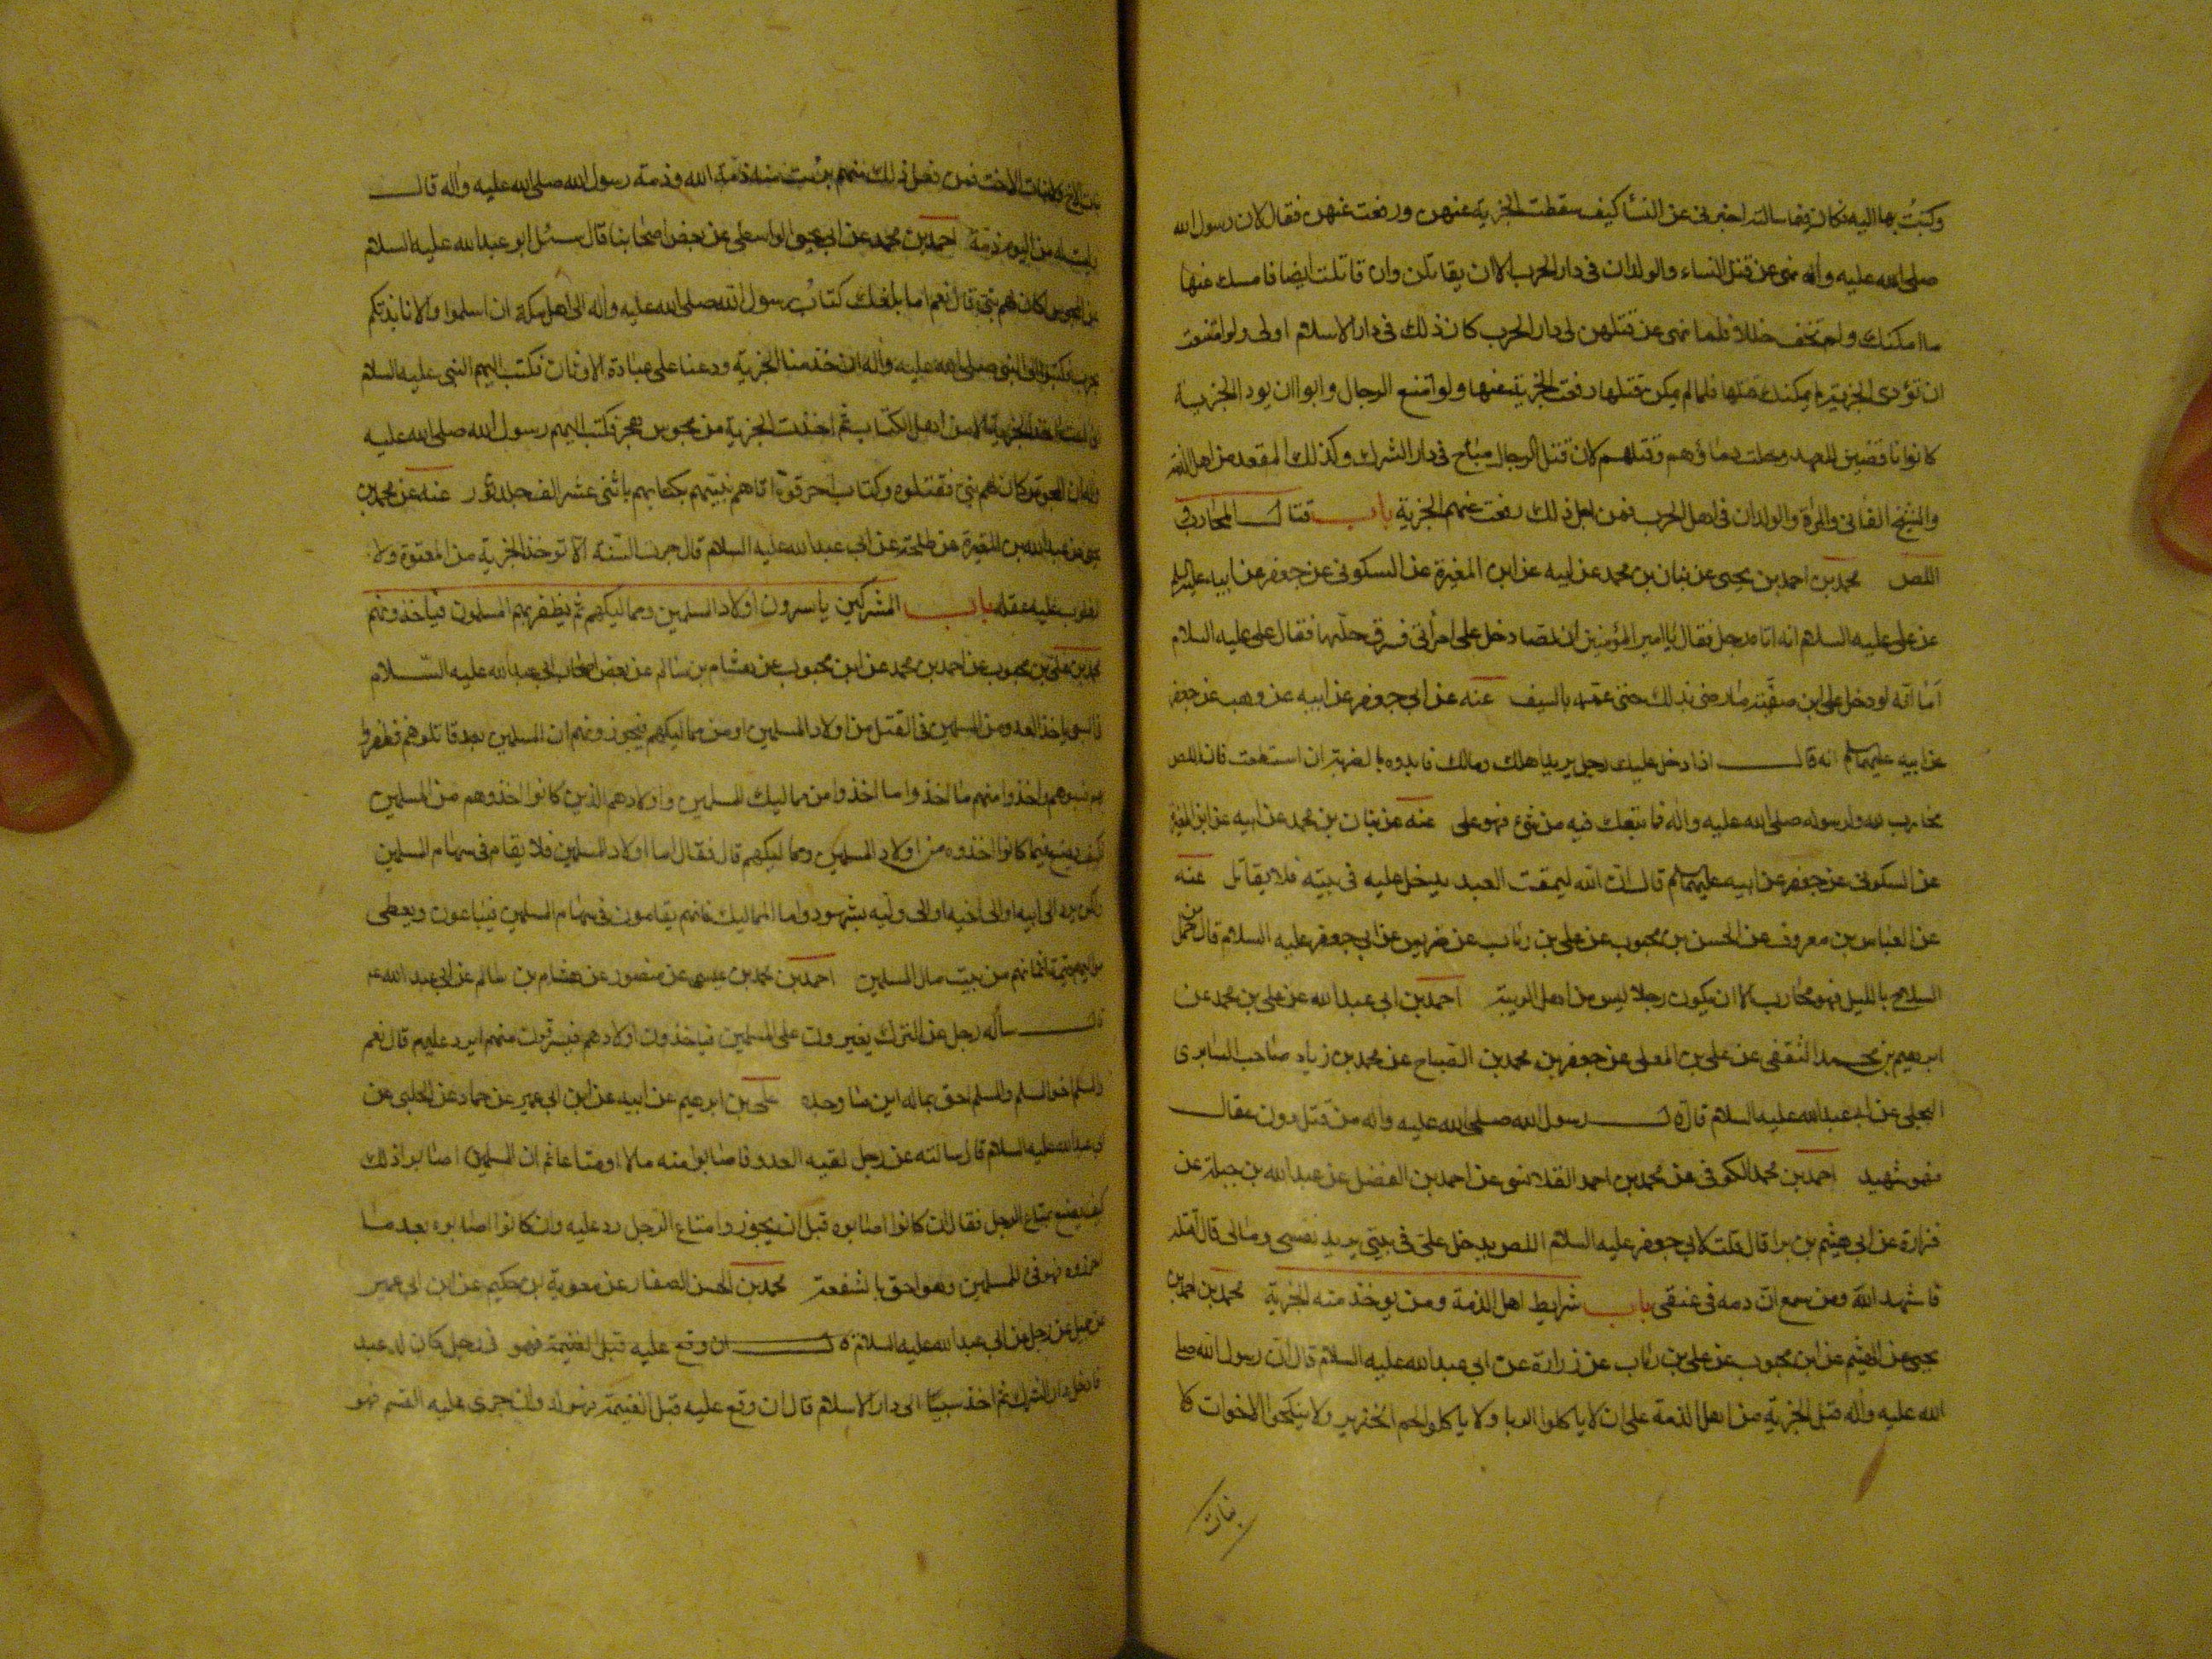 وكتبت بها اليه فكان فيما سالته اخبرنى عن النسأ كيف سقطت الجزية عنهن ورفعت عنهن فقال لان رسول الله
صلى الله عليه واله نهى عن قتل النساء والولدان فى دار الحرب الا ان يقاتلن وان قاتلت ايضا فامسك عنها
ما امكنك ولم تخف خللا فلما نهى عن قتلهن فى دار الحرب كان ذلك فى دار الاسلام اولى ولو امتنعت
ان تؤدى الجزية لم يمكنك قتلها فلما لم يمكن قتلها رفعت الجزية عنها ولو امتنع الرجال وابوا ان يودا الجزية
كانوا ناقضين للعهد وحلت دماؤهم وقتلهم لان قتل الرجال مباح فى دار الشرك وكذلك المقعد من اهل الذمة
والشيخ الفانى والمرأة والولدان فى اهل الحرب فمن اجل ذلك رفعت عنهم الجزية باب قتال المحارب و
اللص محمد بن احمد بن يحيى عن بنان بن محمد عن ابيه عن ابن المغيرة عن السكونى عن جعفر عن ابيه عليه السلم
عن على عليه السلام انه اتاه رجل فقال يا امير المؤمنين ان لصا دخل على امرأتى فسرق حليها فقال على عليه السلام
اما انه لو دخل على ابن صفية ما رضى بذلك حتى عمه بالسيف عنه عن ابى جعفر عن ابيه عن وهب عن جعفر
عن ابيه عليهما السلم انه قال اذا دخل عليك رجل يريد اهلك ومالك فابدره بالضربة ان استطعت فان اللص
محارب لله ولرسوله صلى الله عليه واله فما تبعك فيه من شئ فهو على عنه عن بنان بن محمد عن ابيه عن ابن المغيرة
عن السكونى عن جعفر عن ابيه عليهما السلم قال ان الله ليمقت العبد يدخل عليه فى بيته فلا يقاتل عنه
عن العباس بن معروف عن الحسن بن محبوب عن على بن رئاب عن ضريس عن ابى جعفر عليه السلام قال من حمل
السلاح بالليل فهو محارب الا ان يكون رجلا ليس من اهل الريبة احمد بن ابى عبد الله عن على بن محمد عن
ابرهيم بن محمد الثقفى عن على بن المعلى عن جعفر بن محمد بن الصباح عن محمد بن زياد صاحب السابرى
البجلى عن ابى عبد الله عليه السلام قال قال رسول الله صلى الله عليه واله من قتل دون عقال
فهو شهيد احمد بن محمد الكوفى عن محمد بن احمد القلانسى عن احمد بن الفضل عن عبد الله بن جبلة عن
فزارة عن ابى هيثم بن برا قال قلت لابى جعفر عليه السلام اللص يدخل على فى بيتى يريد نفسى ومالى قال اقتله
فاشهد الله ومن سمع ان دمه فى عنقى باب شرايط اهل الذمة ومن يوخذ منه الجزية محمد بن احمد بن
يحيى عن الهيثم عن ابن محبوب عن على بن رئاب عن زرارة عن ابى عبد الله عليه السلام قال ان رسول الله صلى
الله عليه واله قبل الجزية من اهل الذمة على ان لا ياكلوا الربا ولا ياكلوا لحم الخنزير ولا ينكحوا الاخوات ولا
بنات
بنات الاخ ولا بنات الاخت فمن فعل ذلك منهم برئت منه ذمة الله وذمة رسول الله صلى الله عليه واله قال
ليست لهم اليوم ذمة احمد بن محمد عن ابى يحيى الواسطى عن بعض اصحابنا قال سئل ابو عبد الله عليه السلام
عن المجوس كان لهم نبى قال نعم اما بلغك كتاب رسول الله صلى الله عليه واله الى اهل مكة ان اسلموا والا نابذتكم
بحرب فكتبوا الى النبى صلى الله عليه واله ان خذ منا الجزية ودعنا على عبادة الاوثان فكتب اليهم النبى عليه السلام
اخذت الجزية من مجوس هجر فكتب اليهم رسول الله صلى الله عليه
واله ان المجوس كان لهم نبى فقتلوه وكتاب احرقوه اتاهم نبيهم بكتابهم باثنى عشر الف جلد ثور عنه عن محمد بن
يحيى عن عبد الله بن المغيرة عن طلحة عن ابى عبد الله عليه السلام قال جرت السنة الا توخذ الجزية من المعتوه ولا
المغلوب عليه عقله باب المشركين ياسرون اولاد المسلمين ومماليكهم ثم يظفر بهم المسلمون فياخذونهم
محمد بن على بن محبوب عن احمد بن محمد عن ابن محبوب عن هشام بن سالم عن بعض اصحاب ابى عبد الله عليه السلام
فى السبى ياخذ العدو من المسلمين فى القتل من اولاد المسلمين او من مماليكهم فيحوزونهم ان المسلمين بعد قاتلوهم فظفروا
بهم فسبوهم واخذوا منهم ما اخذوا من مماليك المسلمين واولادهم الذين كانوا اخذوهم من المسلمين
كيف يصنع فيما كانوا اخذوه من اولاد المسلمين ومماليكهم قال فقال اما اولاد المسلمين فلا يقام فى سهام المسلمين
ولكن يرد الى ابيه او الى اخيه او الى وليه بشهود واما المماليك فانهم يقامون فى سهام المسلمين فيباعون ويعطى
مواليهم قيمة اثمانهم من بيت مال المسلمين احمد بن محمد بن عيسى عن منصور عن هشام بن سالم عن ابى عبد الله عم
قال سأله رجل عن الترك يغيرون على المسلمين فياخذون اولادهم فيسرقون منهم ايرد عليهم قال نعم
والمسلم اخو المسلم والمسلم احق بماله اين ما وجده على بن ابرهيم عن ابيه عن ابن ابى عمير عن حماد عن الحلبى عن
ابى عبد الله عليه السلام قال سالته عن رجل لقيه العدو فاصابوا منه مالا او متاعا ثم ان المسلمين اصابوا ذلك
كيف يصنع بمتاع الرجل فقال ان كانوا اصابوه قبل ان يحوزوا متاع الرجل رد عليه وان كانوا اصابوه بعد ما
احرزوه فهو فئ للمسلمين وهو احق بالشفعة محمد بن الحسن الصفار عن معوية بن حكيم عن ابن ابى عمير
عن جميل عن رجل عن ابى عبد الله عليه السلام فى رجل كان له عبد
فادخل دار الشرك ثم اخذ سبيا الى دار الاسلام قال ان وقع عليه قبل القسمة فهو له وان جرى عليه القسم فهو